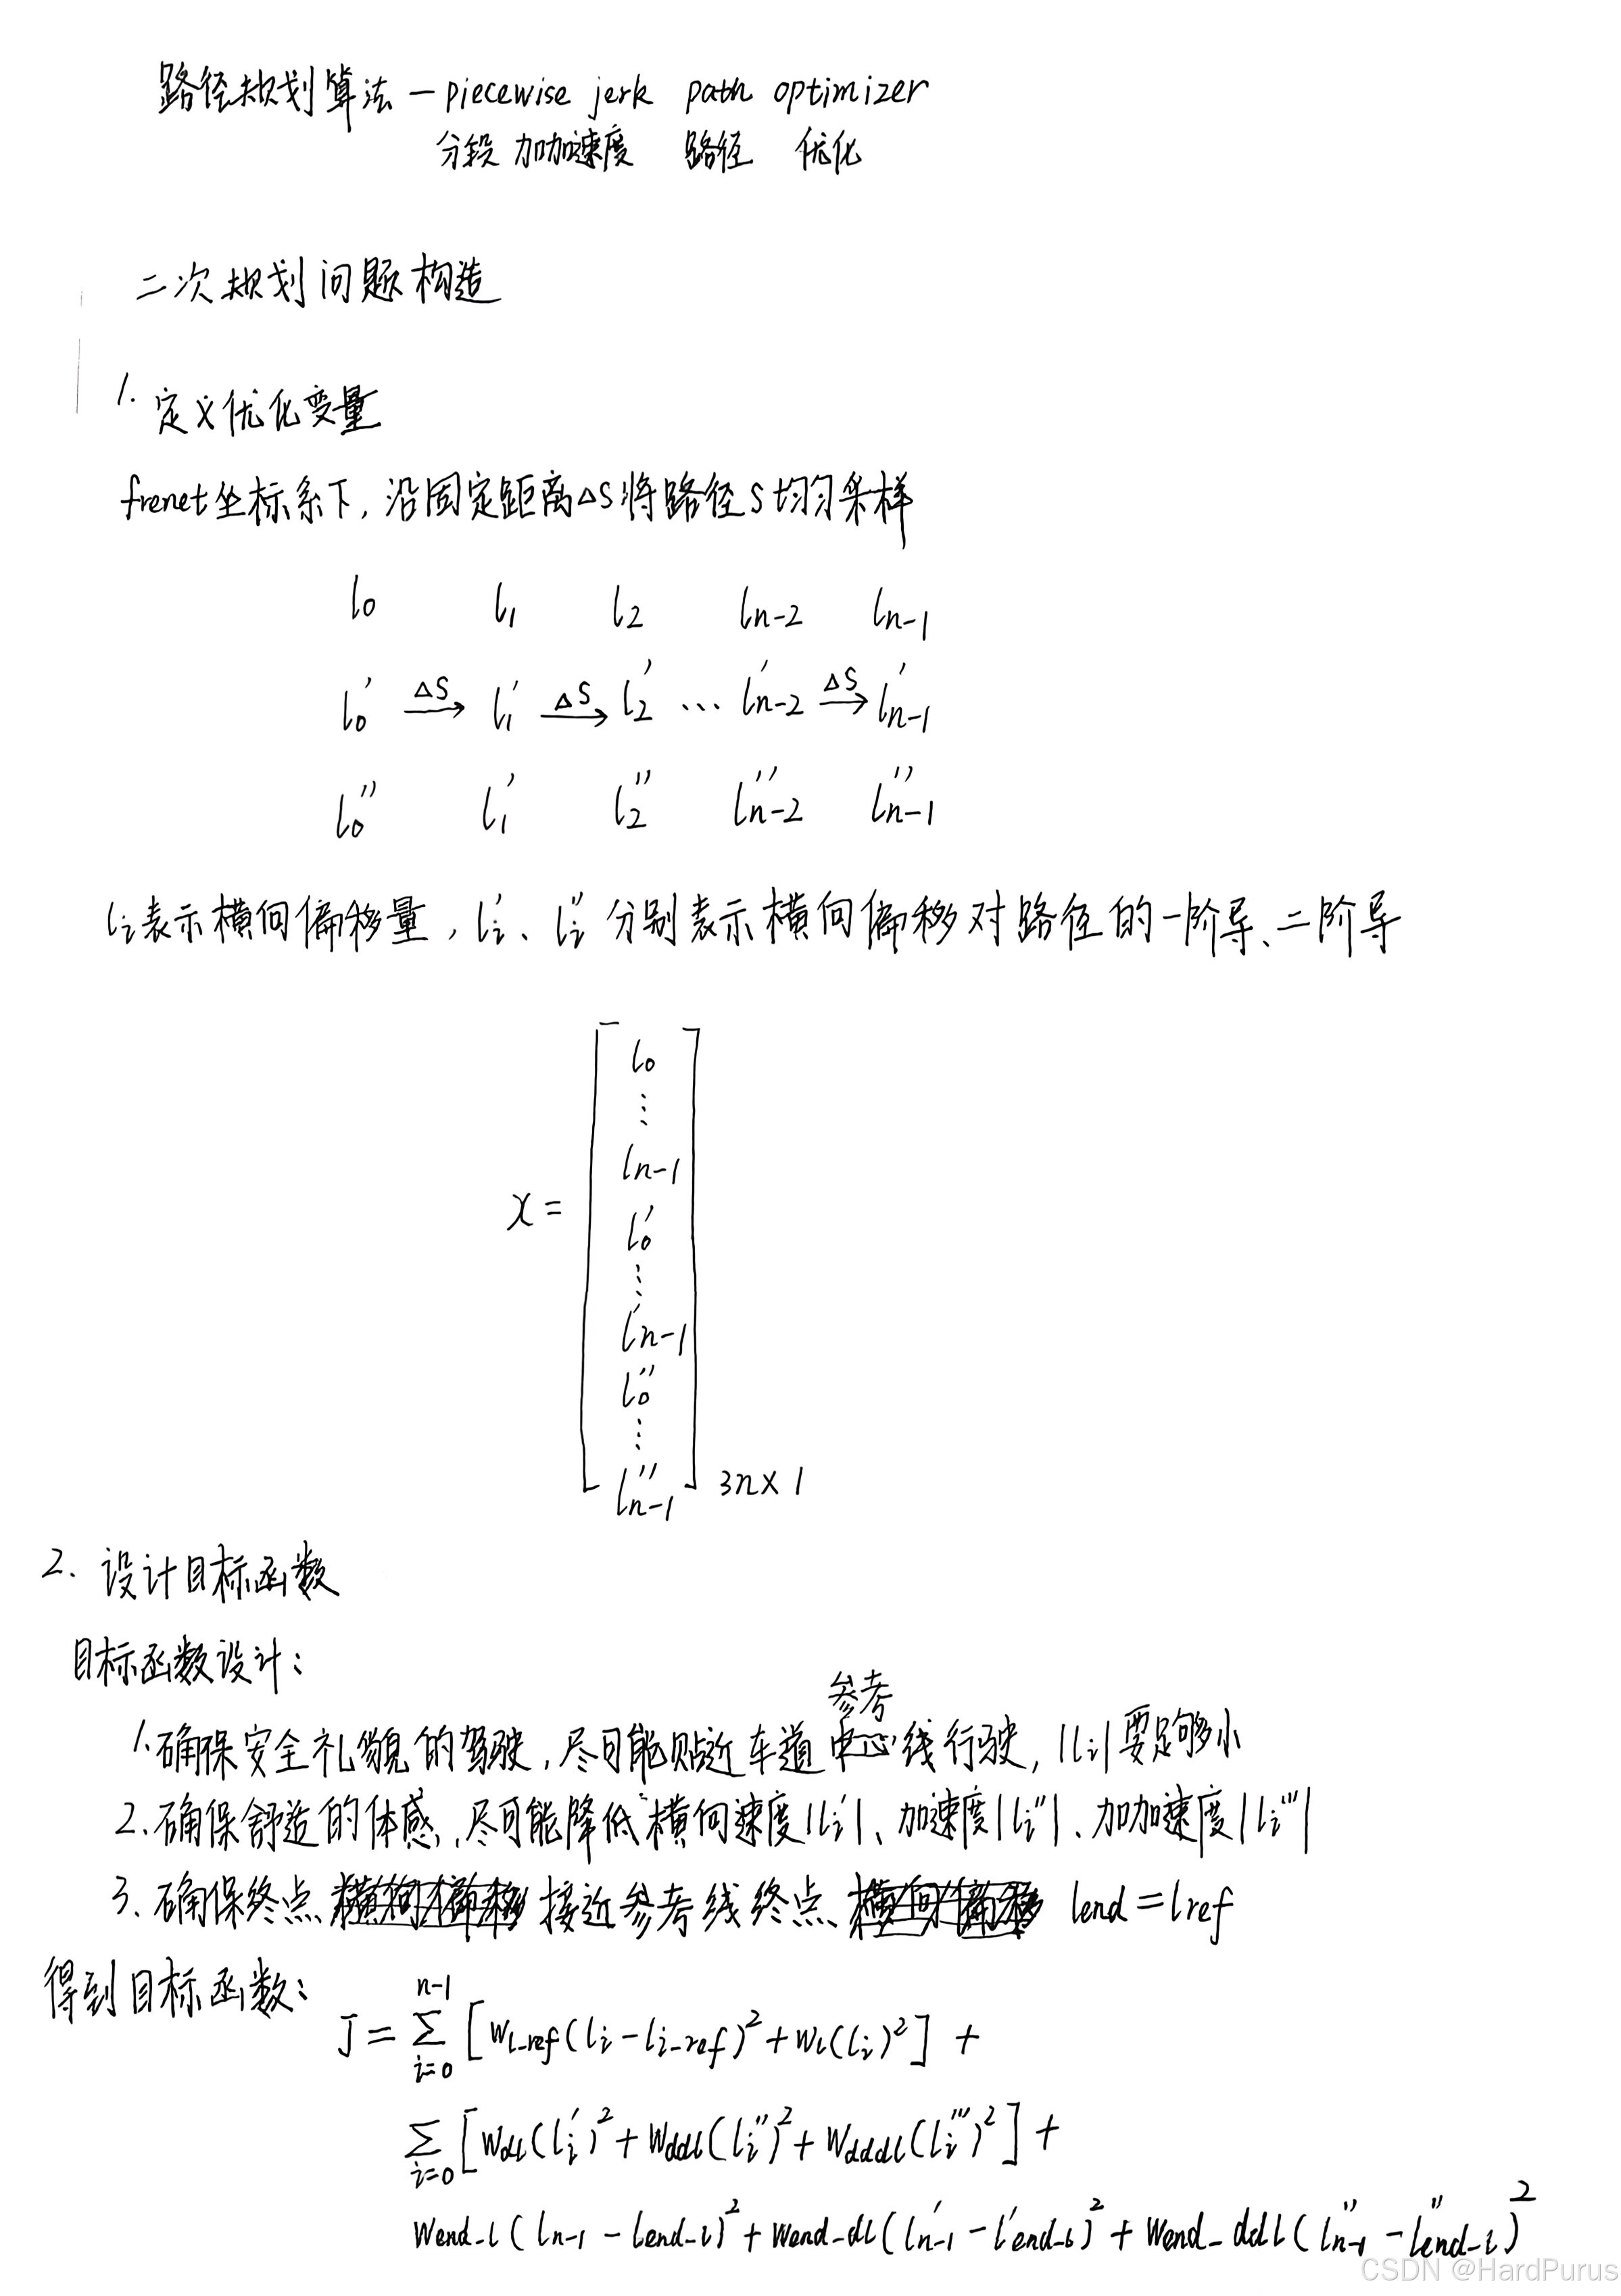 路径规划算法 — piecewise jerk path optimizer
分段 加加速度 路径 优化
二次规划问题构造
1. 定义优化变量
frenet坐标系下, 沿固定距离△S将路径S均匀采样
l₀ l₁ l₂ lₙ₋₂ lₙ₋₁
l₀' △S→ l₁' △S→ l₂' ... lₙ₋₂' △S→ lₙ₋₁'
l₀'' l₁' l₂'' lₙ₋₂'' lₙ₋₁''
lᵢ表示横向偏移量, lᵢ'、lᵢ'' 分别表示横向偏移对路径的一阶导、二阶导
l₀
⋮
lₙ₋₁
l₀'
⋮
x = lₙ₋₁'
l₀''
⋮
lₙ₋₁'' 3n×1
2. 设计目标函数
目标函数设计:
参考
1. 确保安全礼貌的驾驶, 尽可能贴近车道中心线行驶, |lᵢ|要足够小
2. 确保舒适的体感, 尽可能降低横向速度|lᵢ'|、加速度|lᵢ''|、加加速度|lᵢ'''|
3. 确保终点横向偏移接近参考线终点横向偏移 lend = lref
得到目标函数:
J = ∑ᵢ₌₀ⁿ⁻¹ [wl_ref(lᵢ - lᵢ_ref)² + wl(lᵢ)²] +
∑ᵢ₌₀ [wdl(lᵢ')² + wddl(lᵢ'')² + wdddl(lᵢ''')²] +
wend_l(lₙ₋₁ - lend_l)² + wend_dl(lₙ₋₁' - l'end_l)² + wend_ddl(lₙ₋₁'' - l''end_l)²
CSDN @HardPurus